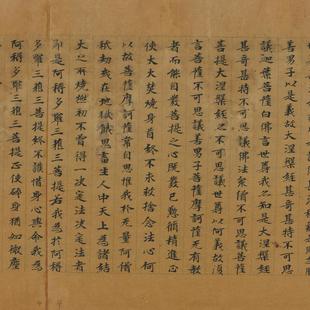 善男子以是義故大涅槃經甚奇甚特不可思
議迦葉菩薩白佛言世尊我已知是大涅槃經
甚奇甚特不可思議佛法衆僧不可思議菩薩
菩提大涅槃經之不可思議世尊以何義故復
言菩薩不可思議善男子菩薩摩訶薩无有教
者而能自發菩提之心既發已懃脩精進正
使大火焚燒身首終不求救捨念法心何
以故菩薩摩訶薩常自思惟我於无量阿僧
祇劫或在地獄餓鬼畜生人中天上為諸結
火之所燒然初不曾得一決定法決定法者
即是阿耨多羅三藐三菩提若我為於阿耨
多羅三藐三菩提終不護惜身心與命我為
阿耨多羅三藐三菩提正使碎身猶如微塵